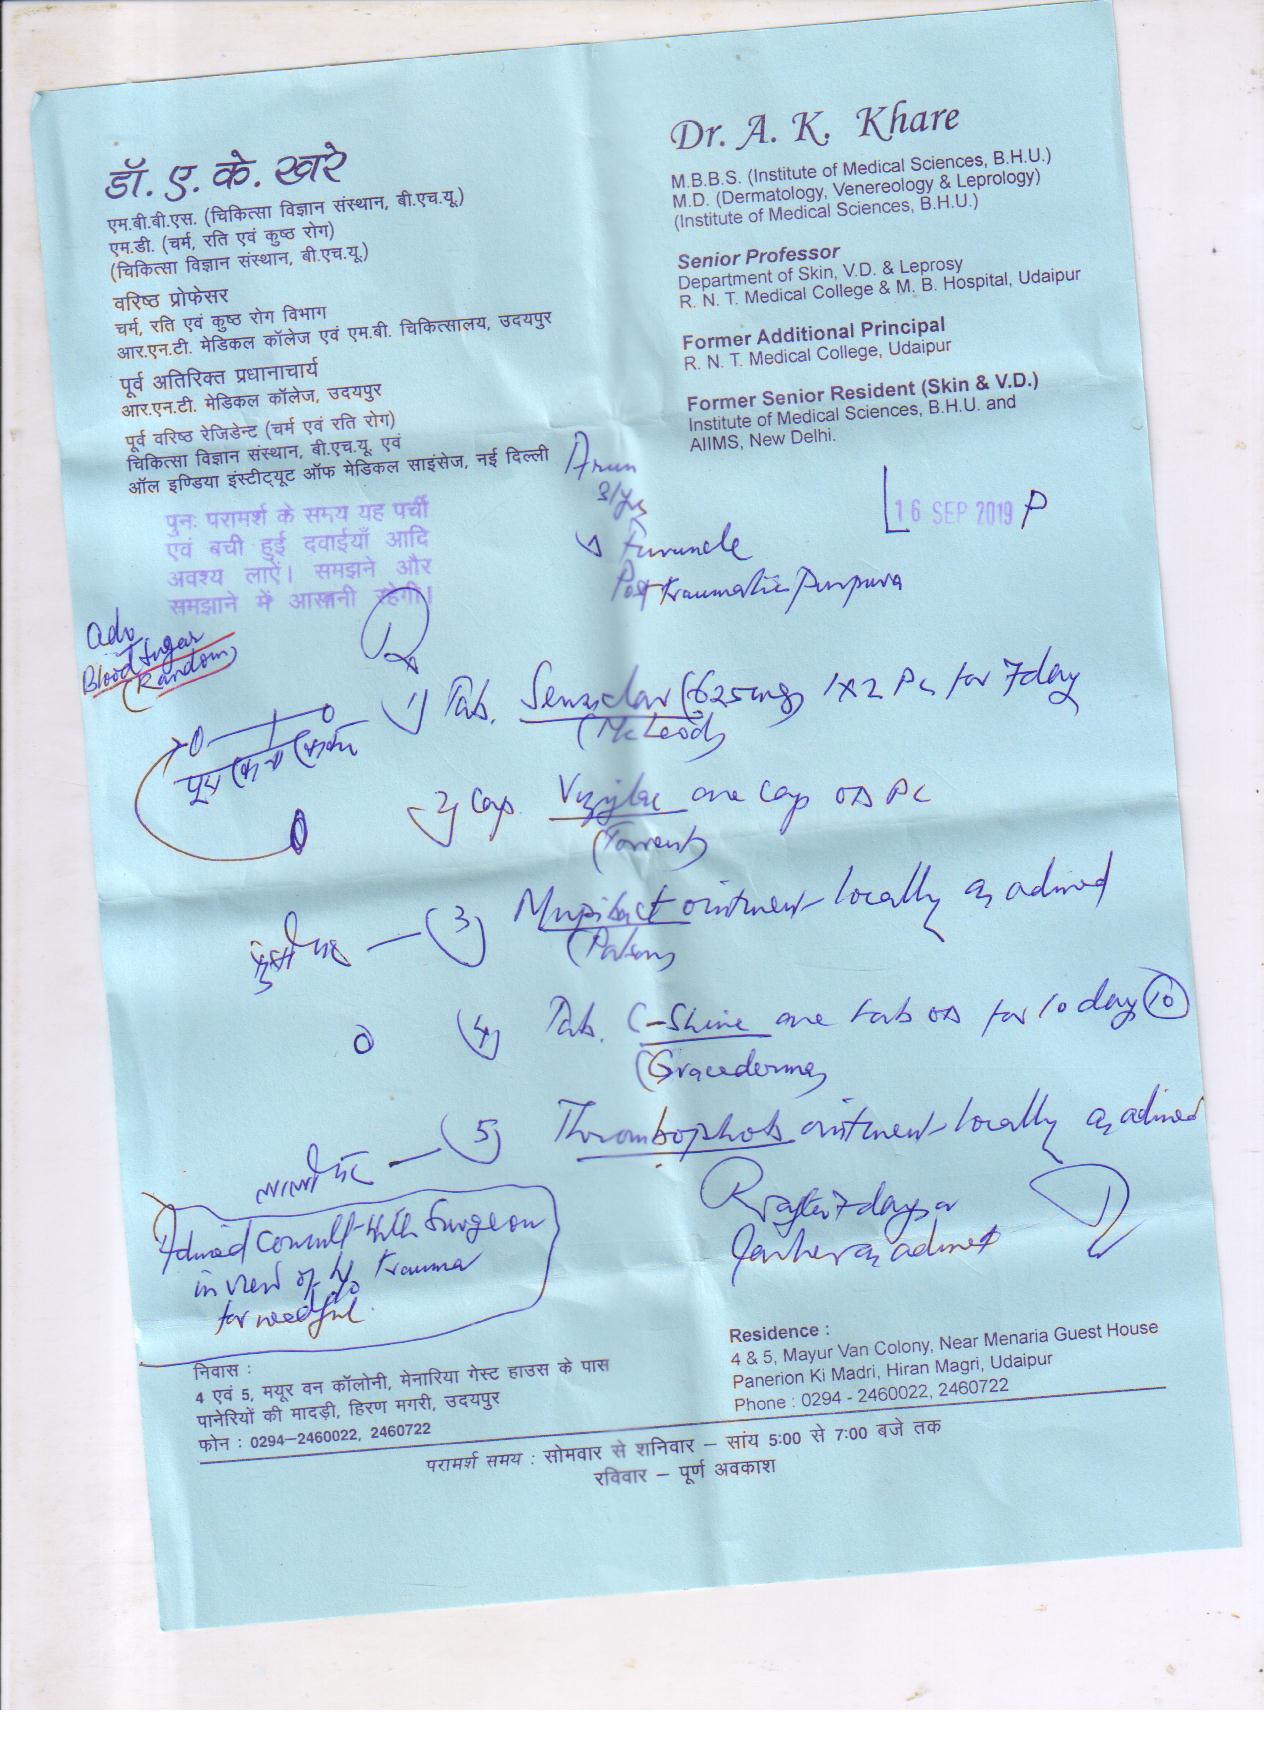 डॉ. ए. के. खरे
एम.बी.बी.एस. (चिकित्सा विज्ञान संस्थान, बी.एच.यू.)
एम.डी. (चर्म, रति एवं कुष्ठ रोग)
(चिकित्सा विज्ञान संस्थान, बी.एच.यू.)
वरिष्ठ प्रोफेसर
चर्म, रति एवं कुष्ठ रोग विभाग
आर.एन.टी. मेडिकल कॉलेज एवं एम.बी. चिकित्सालय, उदयपुर
पूर्व अतिरिक्त प्रधानाचार्य
आर.एन.टी. मेडिकल कॉलेज, उदयपुर
पूर्व वरिष्ठ रेजिडेन्ट (चर्म एवं रति रोग)
चिकित्सा विज्ञान संस्थान, बी.एच.यू. एवं
ऑल इण्डिया इंस्टीट्यूट ऑफ मेडिकल साइंसेज, नई दिल्ली
Dr. A. K. Khare
M.B.B.S. (Institute of Medical Sciences, B.H.U.)
M.D. (Dermatology, Venereology & Leprology)
(Institute of Medical Sciences, B.H.U.)
Senior Professor
Department of Skin, V.D. & Leprosy
R. N. T. Medical College & M. B. Hospital, Udaipur
Former Additional Principal
R. N. T. Medical College, Udaipur
Former Senior Resident (Skin & V.D.)
Institute of Medical Sciences, B.H.U. and
AIIMS, New Delhi.
पुनः परामर्श के समय यह पर्ची
एवं बची हुई दवाईयाँ आदि
अवश्य लाऐं। समझने और
समझाने में आसानी रहेगी।
16 SEP 2019 P
Furuncle
Post traumatic Purpura
Adv
Blood Sugar
(Random)
1) Tab. (625mg) 1x2 PC for 7 day
(McLeod)
2) Cap. one cap OD PC
(Torrent)
(3) ointment locally as advised
(4) Tab. C-Shine one tab OD for 10 day (10)
(Gracederma)
(5) Thrombophob ointment locally as advised
R after 7 days or
earlier as advised
Advised consult with Surgeon
in view of h/o trauma
for needful.
निवास :
4 एवं 5, मयूर वन कॉलोनी, मेनारिया गेस्ट हाउस के पास
पानेरियों की मादड़ी, हिरण मगरी, उदयपुर
फोन : 0294–2460022, 2460722
Residence :
4 & 5, Mayur Van Colony, Near Menaria Guest House
Panerion Ki Madri, Hiran Magri, Udaipur
Phone : 0294 - 2460022, 2460722
परामर्श समय : सोमवार से शनिवार – सांय 5:00 से 7:00 बजे तक
रविवार – पूर्ण अवकाश